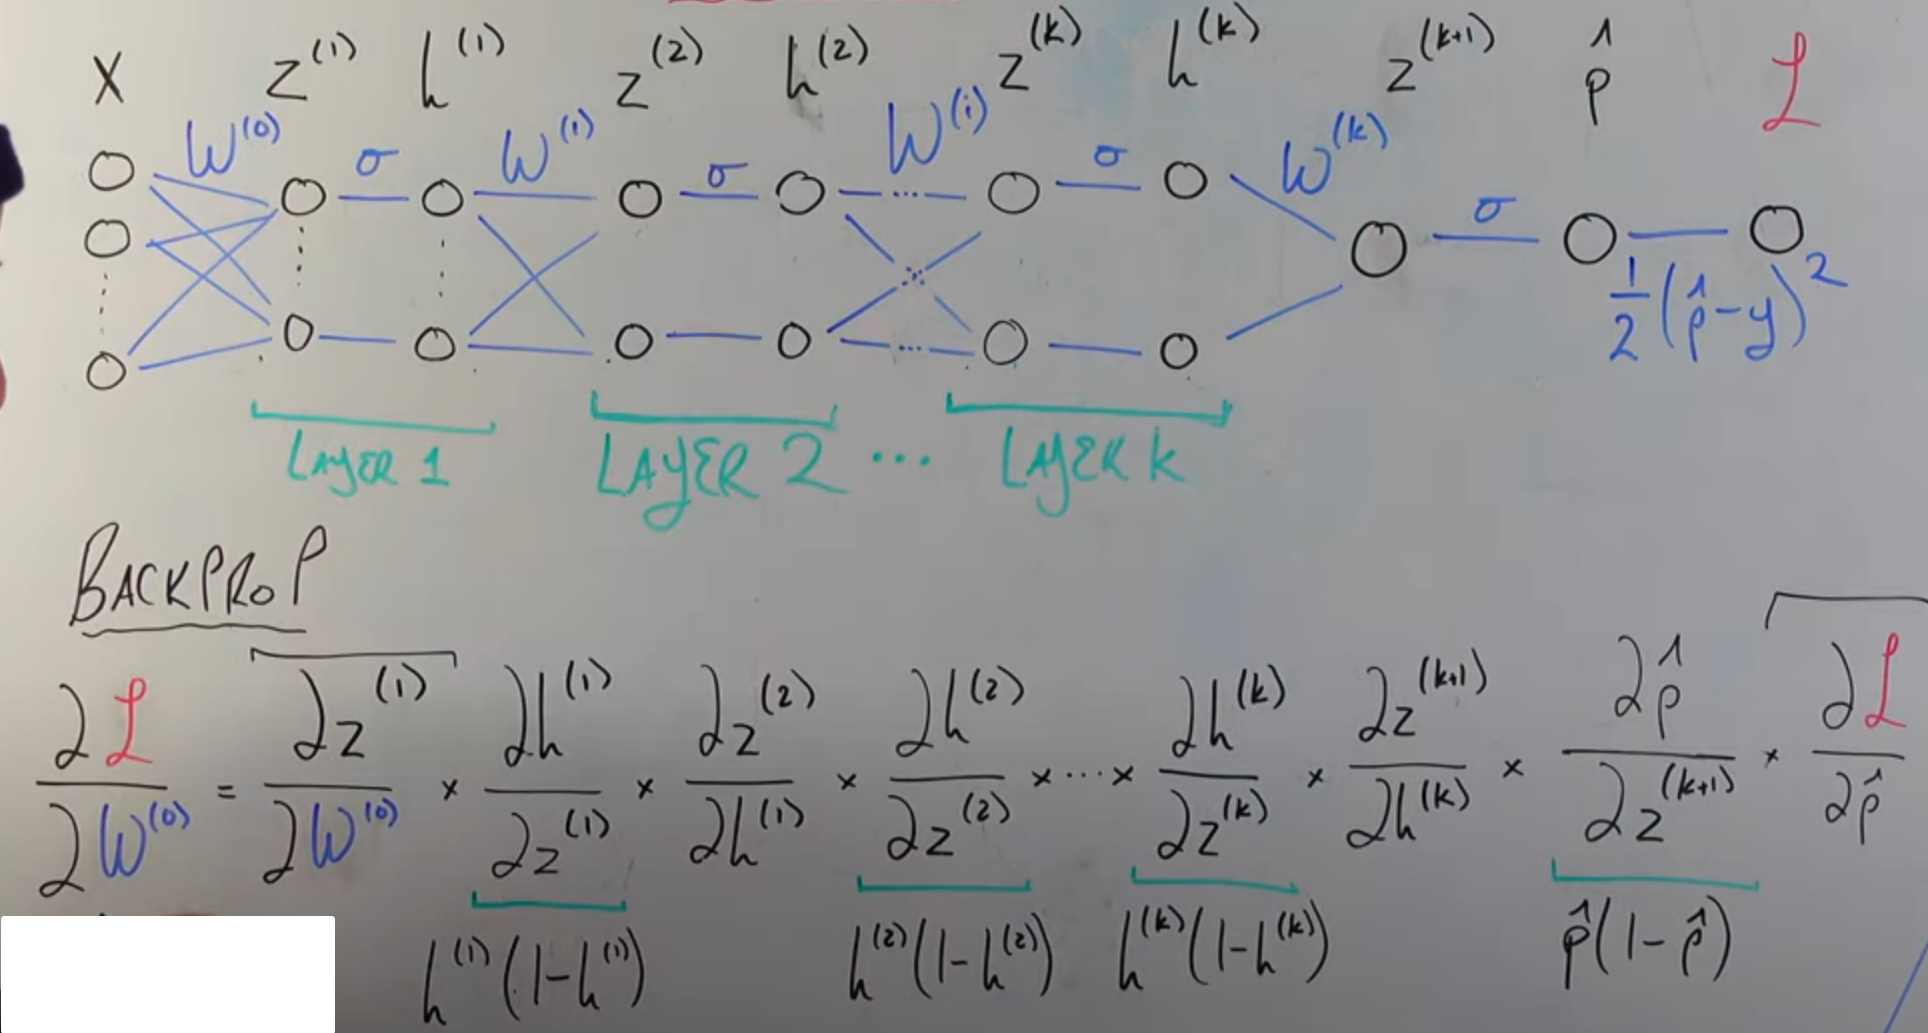 X z^(1) h^(1) z^(2) h^(2) z^(k) h^(k) z^(k+1) p̂ ℒ
W^(0) σ W^(1) σ W^(i) σ W^(k) σ
1/2 (p̂-y)^2
LAYER 1 LAYER 2 ... LAYER k
BACKPROP
∂ℒ/∂W^(0) = ∂z^(1)/∂W^(0) × ∂h^(1)/∂z^(1) × ∂z^(2)/∂h^(1) × ∂h^(2)/∂z^(2) × ... × ∂h^(k)/∂z^(k) × ∂z^(k+1)/∂h^(k) × ∂p̂/∂z^(k+1) × ∂ℒ/∂p̂
h^(1)(1-h^(1)) h^(2)(1-h^(2)) h^(k)(1-h^(k)) p̂(1-p̂)